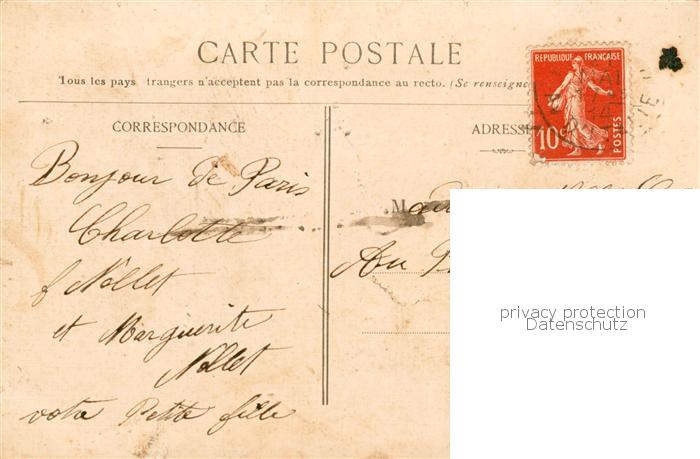 CARTE POSTALE
Tous les pays trangers n'acceptent pas la correspondance au recto. (Se renseigne
REPUBLIQUE FRANÇAISE
10c
POSTES
CORRESPONDANCE
ADRESSE
Bonjour de Paris
Charlotte
Nollet
et Marguerite
Nollet
votre Petite fille
M
Au
privacy protection
Datenschutz